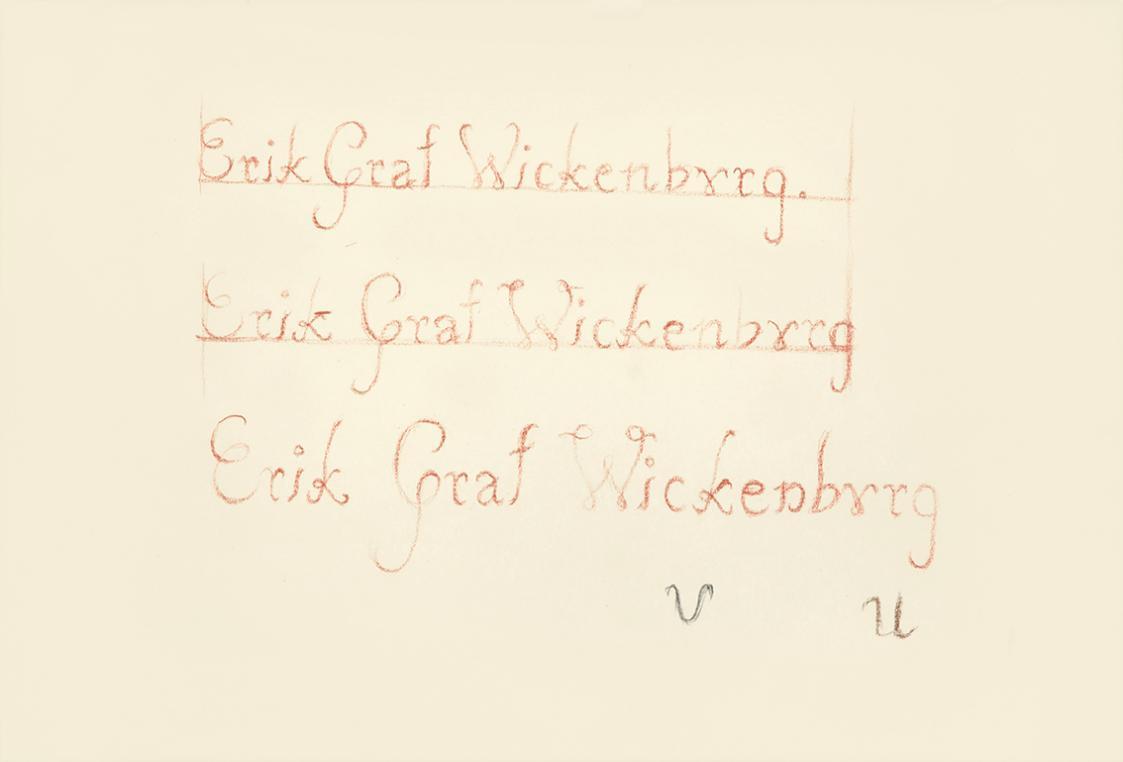 Erik Graf Wickenbvrg.
Erik Graf Wickenbvrg
Erik Graf Wickenbvrg
v u